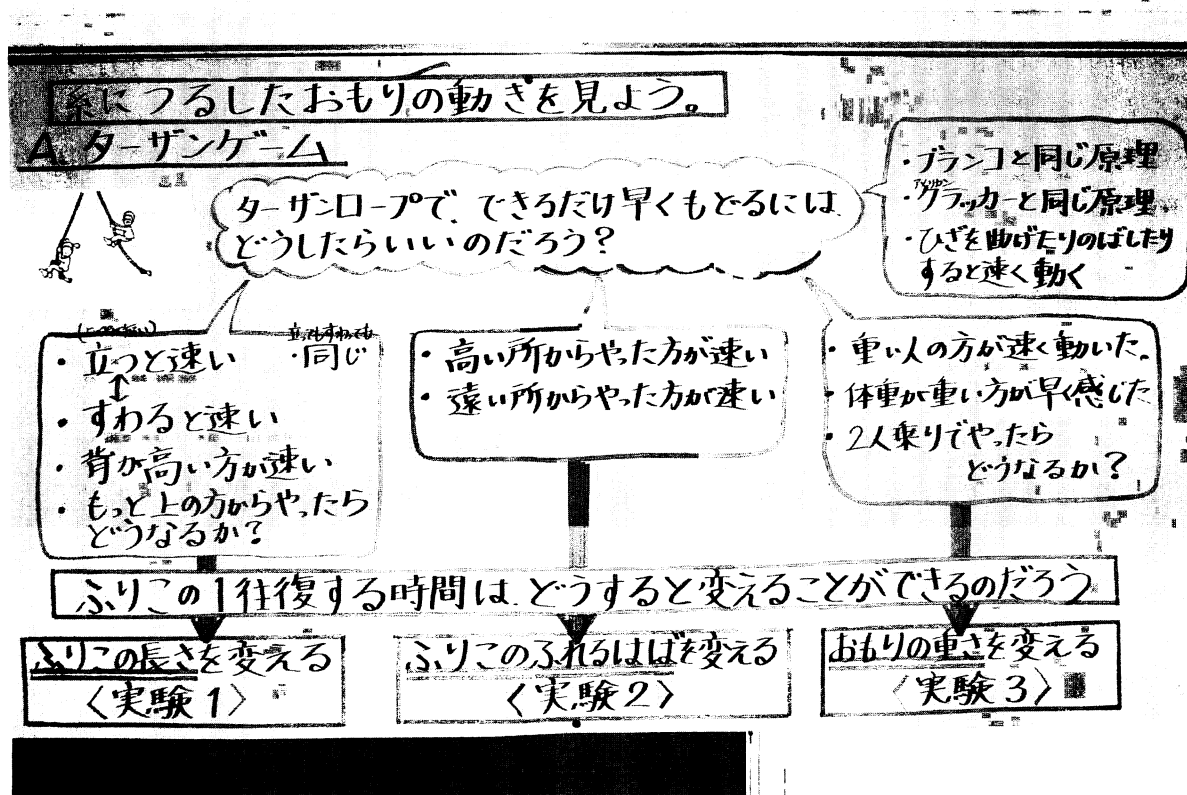 糸につるしたおもりの動きを見よう。
A. ターザンゲーム
ターザンロープで、できるだけ早くもどるには
どうしたらいいのだろう？
・ブランコと同じ原理
・クラッカーと同じ原理
・ひざを曲げたりのばしたり
すると速く動く
・立つと速い
立ってもすわっても
・同じ
↕
・すわると速い
・背が高い方が速い
・もっと上の方からやったら
どうなるか？
・高い所からやった方が速い
・遠い所からやった方が速い
・重い人の方が速く動いた。
・体重が重い方が早く感じた
・2人乗りでやったら
どうなるか？
ふりこの1往復する時間は、どうすると変えることができるのだろう
ふりこの長さを変える
〈実験1〉
ふりこのふれるはばを変える
〈実験2〉
おもりの重さを変える
〈実験3〉